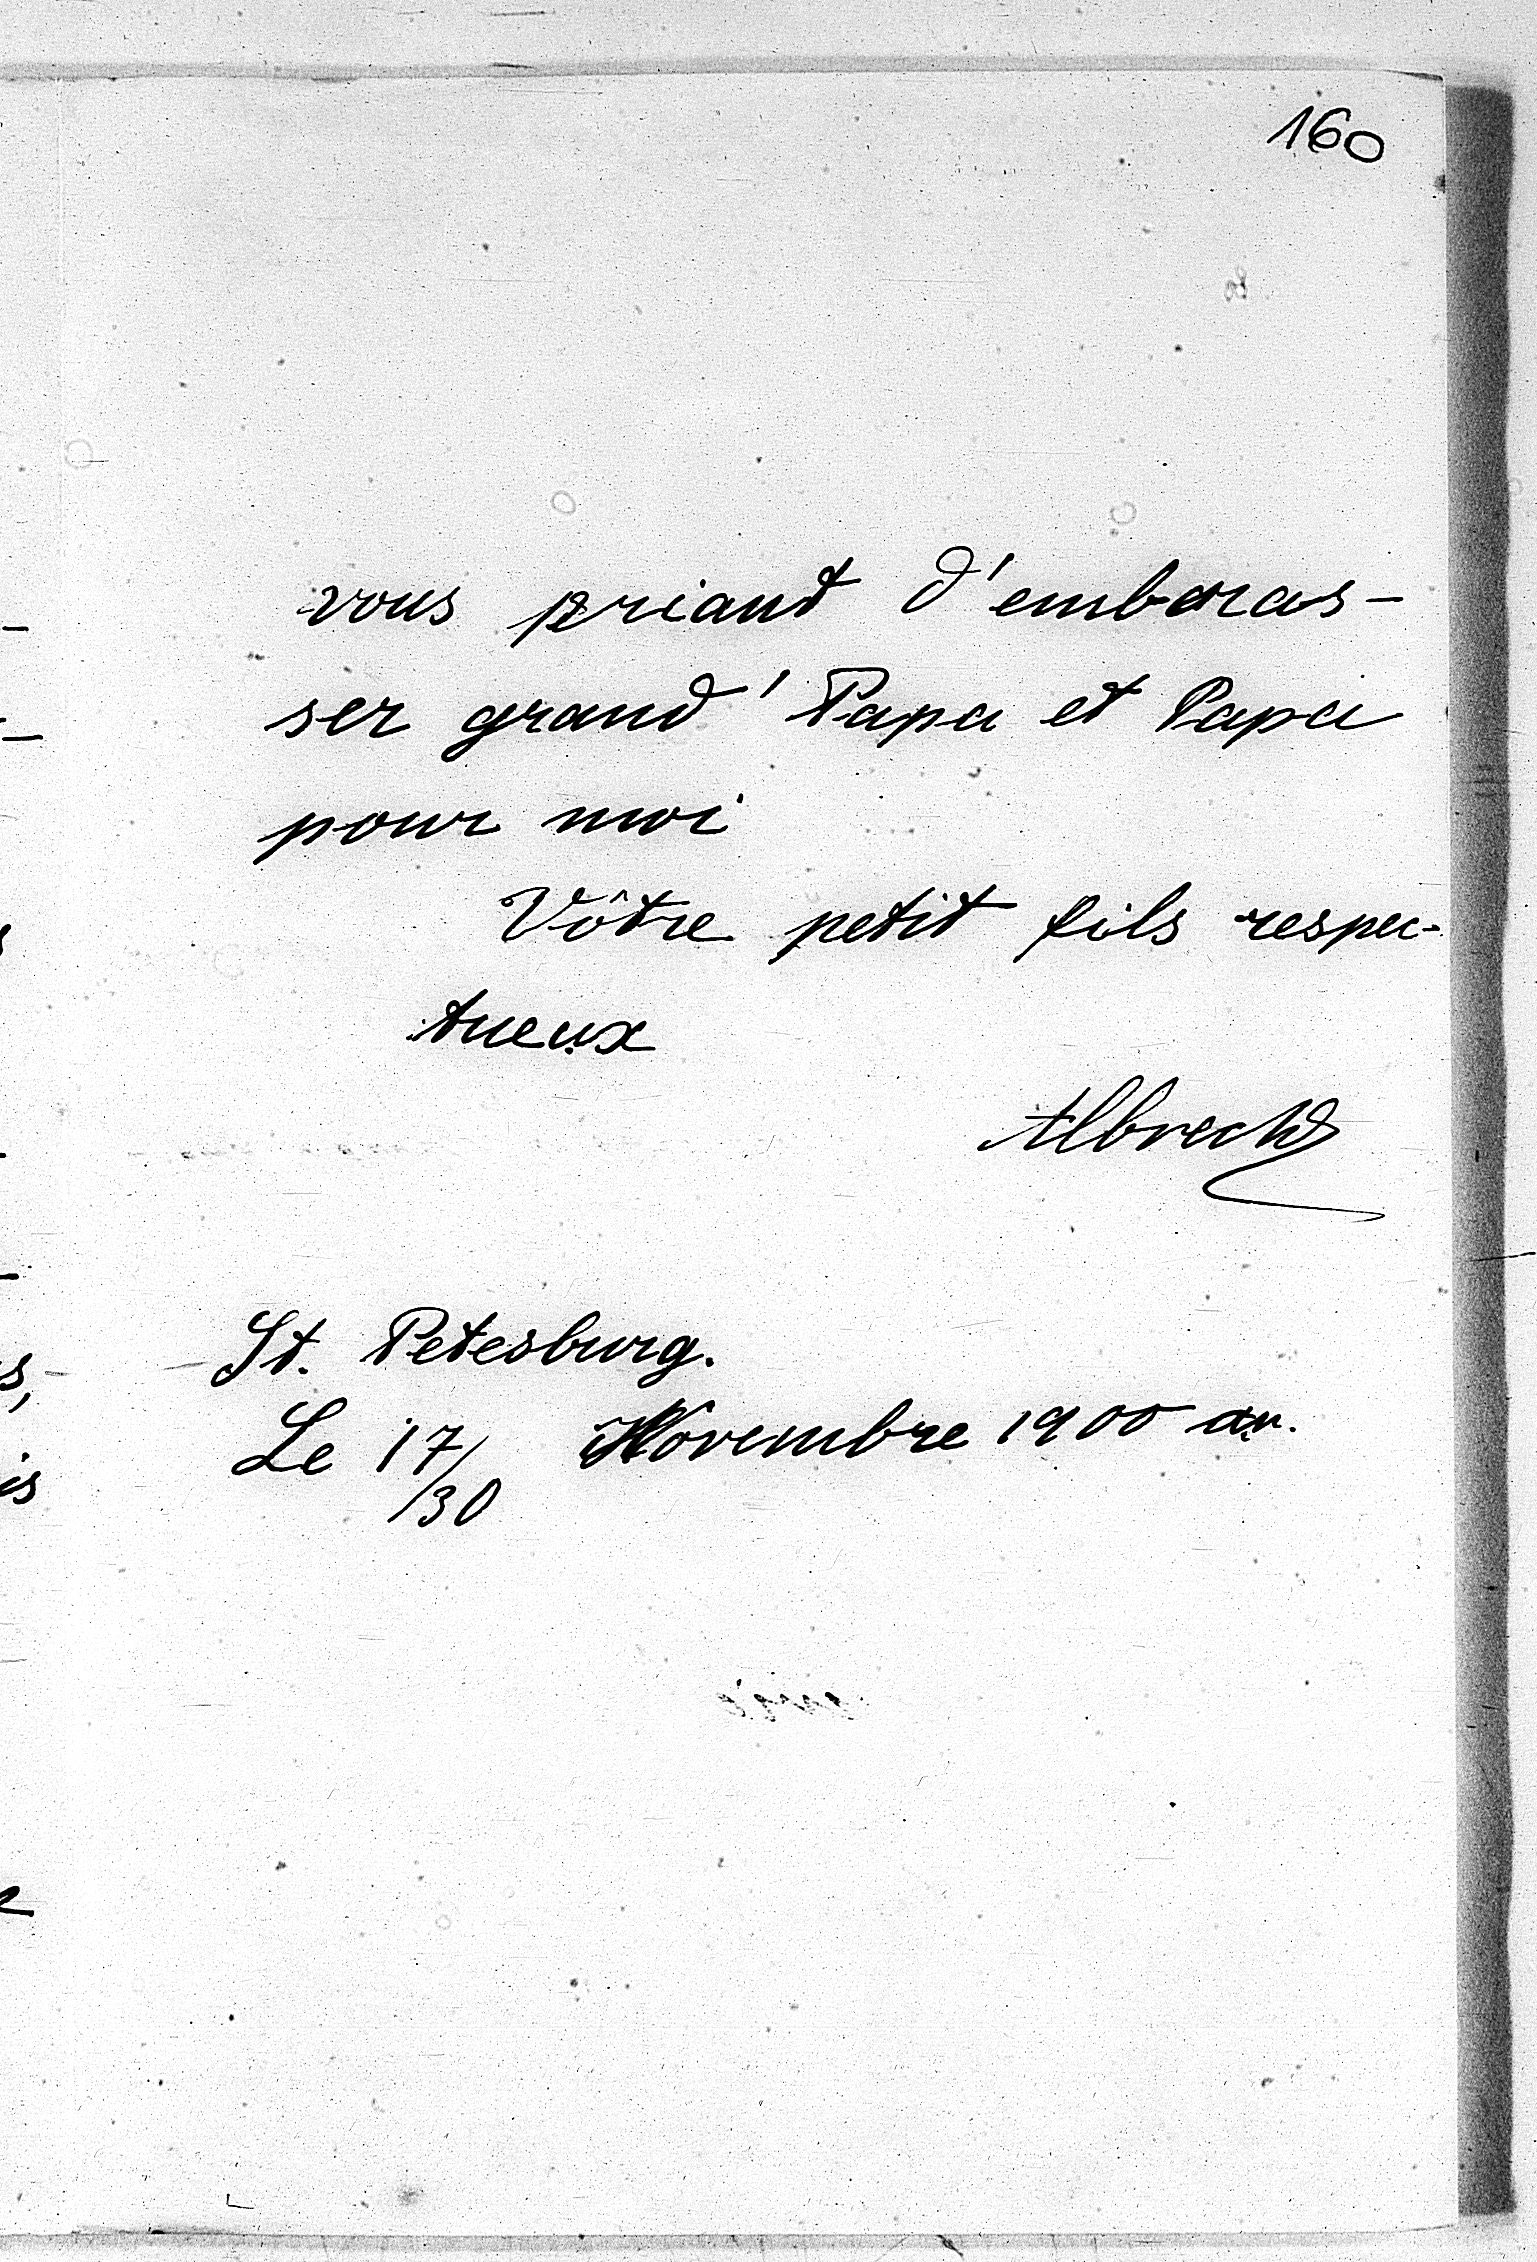 160
vous priant d'embras-
ser grand' Papa et Papa
pour moi
Vôtre petit fils respec-
tueux
Albrecht
St. Petesburg.
Le 17/30 Novembre 1900 an.